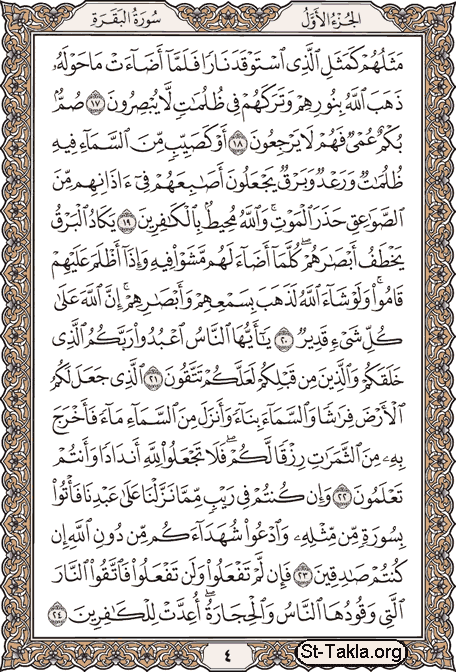 الجزء الأول
سورة البقرة
مَثَلُهُمْ كَمَثَلِ ٱلَّذِى ٱسْتَوْقَدَ نَارًا فَلَمَّآ أَضَآءَتْ مَا حَوْلَهُۥ
ذَهَبَ ٱللَّهُ بِنُورِهِمْ وَتَرَكَهُمْ فِى ظُلُمَٰتٍ لَّا يُبْصِرُونَ ١٧ صُمٌّۢ
بُكْمٌ عُمْىٌ فَهُمْ لَا يَرْجِعُونَ ١٨ أَوْ كَصَيِّبٍ مِّنَ ٱلسَّمَآءِ فِيهِ
ظُلُمَٰتٌ وَرَعْدٌ وَبَرْقٌ يَجْعَلُونَ أَصَٰبِعَهُمْ فِىٓ ءَاذَانِهِم مِّنَ
ٱلصَّوَٰعِقِ حَذَرَ ٱلْمَوْتِ ۚ وَٱللَّهُ مُحِيطٌۢ بِٱلْكَٰفِرِينَ ١٩ يَكَادُ ٱلْبَرْقُ
يَخْطَفُ أَبْصَٰرَهُمْ ۖ كُلَّمَآ أَضَآءَ لَهُم مَّشَوْا۟ فِيهِ وَإِذَآ أَظْلَمَ عَلَيْهِمْ
قَامُوا۟ ۚ وَلَوْ شَآءَ ٱللَّهُ لَذَهَبَ بِسَمْعِهِمْ وَأَبْصَٰرِهِمْ ۚ إِنَّ ٱللَّهَ عَلَىٰ
كُلِّ شَىْءٍ قَدِيرٌ ٢٠ يَٰٓأَيُّهَا ٱلنَّاسُ ٱعْبُدُوا۟ رَبَّكُمُ ٱلَّذِى
خَلَقَكُمْ وَٱلَّذِينَ مِن قَبْلِكُمْ لَعَلَّكُمْ تَتَّقُونَ ٢١ ٱلَّذِى جَعَلَ لَكُمُ
ٱلْأَرْضَ فِرَٰشًا وَٱلسَّمَآءَ بِنَآءً وَأَنزَلَ مِنَ ٱلسَّمَآءِ مَآءً فَأَخْرَجَ
بِهِۦ مِنَ ٱلثَّمَرَٰتِ رِزْقًا لَّكُمْ ۖ فَلَا تَجْعَلُوا۟ لِلَّهِ أَندَادًا وَأَنتُمْ
تَعْلَمُونَ ٢٢ وَإِن كُنتُمْ فِى رَيْبٍ مِّمَّا نَزَّلْنَا عَلَىٰ عَبْدِنَا فَأْتُوا۟
بِسُورَةٍ مِّن مِّثْلِهِۦ وَٱدْعُوا۟ شُهَدَآءَكُم مِّن دُونِ ٱللَّهِ إِن
كُنتُمْ صَٰدِقِينَ ٢٣ فَإِن لَّمْ تَفْعَلُوا۟ وَلَن تَفْعَلُوا۟ فَٱتَّقُوا۟ ٱلنَّارَ
ٱلَّتِى وَقُودُهَا ٱلنَّاسُ وَٱلْحِجَارَةُ ۖ أُعِدَّتْ لِلْكَٰفِرِينَ ٢٤
٤
St-Takla.org